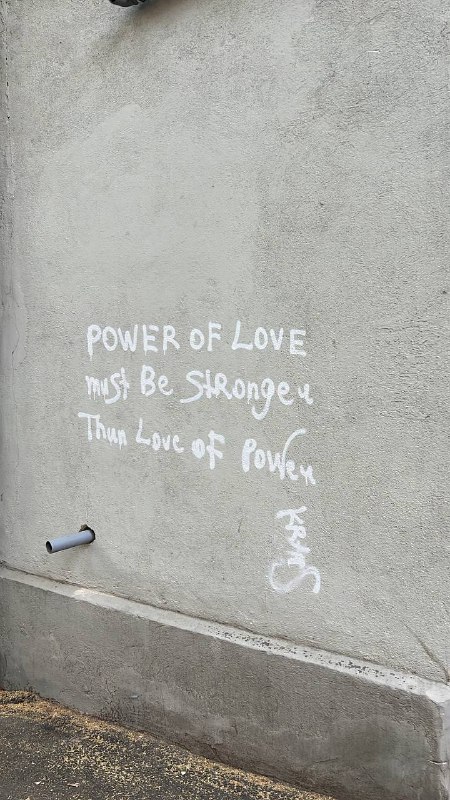 POWER OF LOVE
must Be StRonger
Than Love of Power